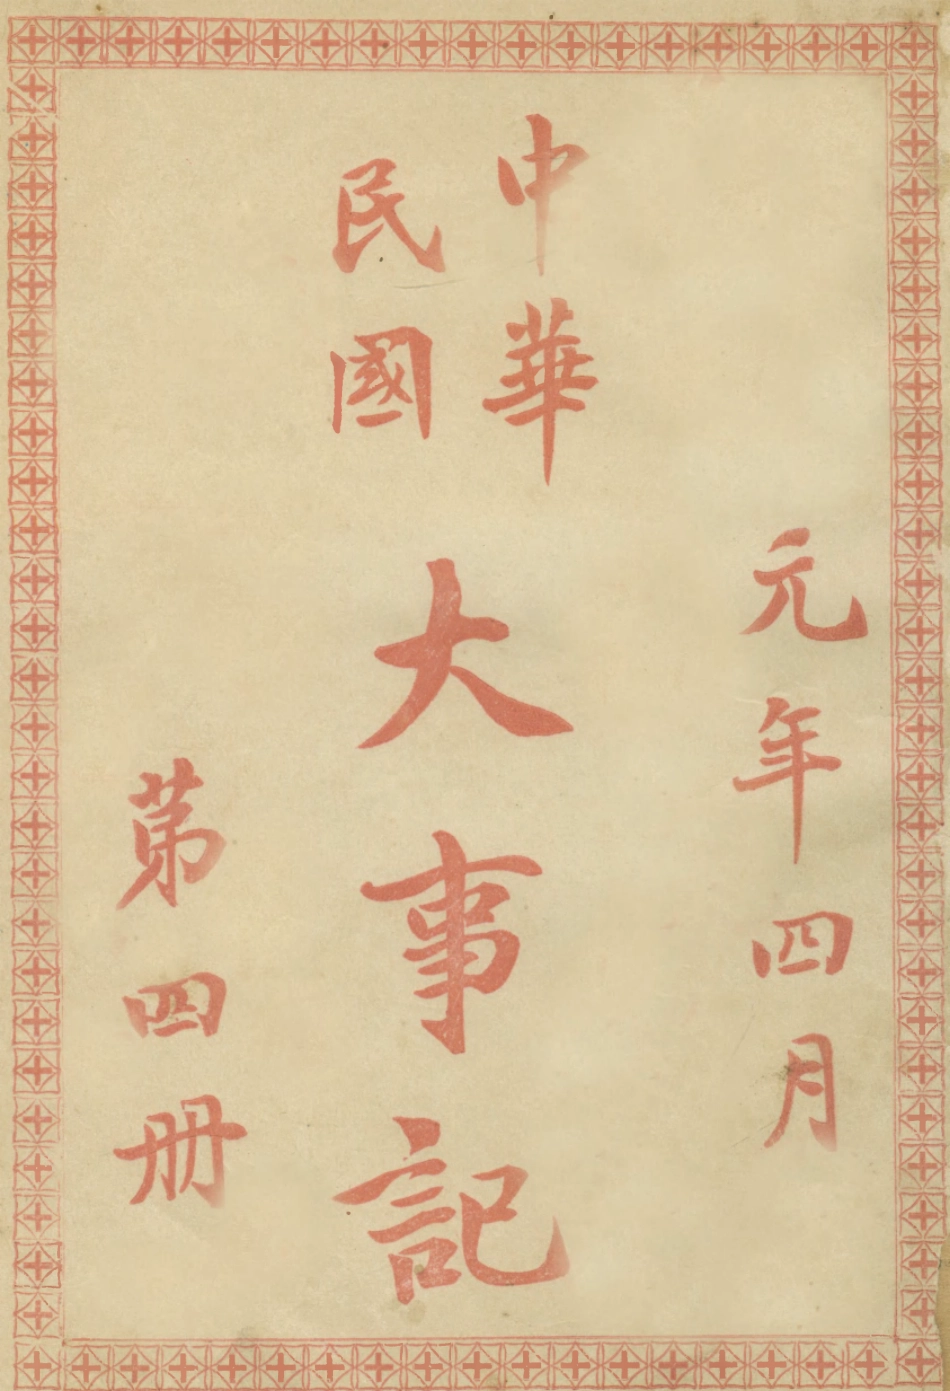 元年四月
中華
民國
大事記
第四册